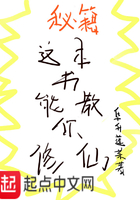 秘籍
这本
书
能教
你
修仙
著
起 起点中文网